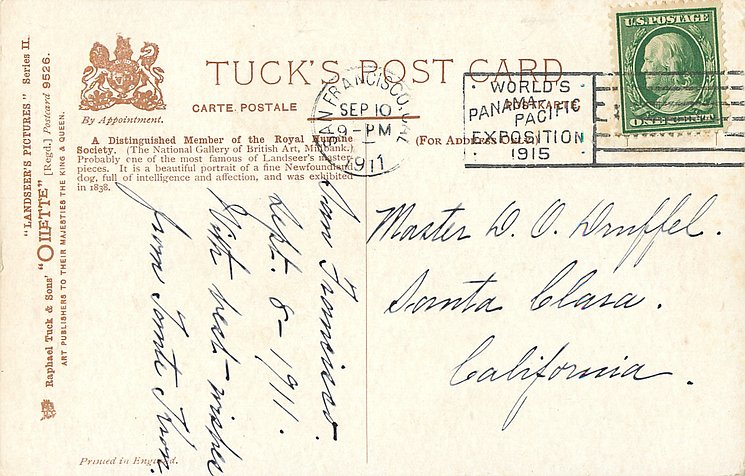 "LANDSEER'S PICTURES" Series II.
Raphael Tuck & Sons' "OILETTE" [Regd.] Postcard 9526.
ART PUBLISHERS TO THEIR MAJESTIES THE KING & QUEEN.
TUCK'S POST CARD
CARTE POSTALE
POSTKARTE
By Appointment.
(FOR ADDRESS ONLY)
A Distinguished Member of the Royal Humane
Society. (The National Gallery of British Art, Millbank.)
Probably one of the most famous of Landseer's master-
pieces. It is a beautiful portrait of a fine Newfoundland
dog, full of intelligence and affection, and was exhibited
in 1838.
SAN FRANCISCO, CAL.
SEP 10
9-PM
1911
WORLD'S
PANAMA-PACIFIC
EXPOSITION
1915
U.S. POSTAGE
ONE CENT
San Francisco.
Sept. 8-1911.
With best wishes
from Tomte
Master D. O. Druffel.
Santa Clara.
California.
Printed in England.